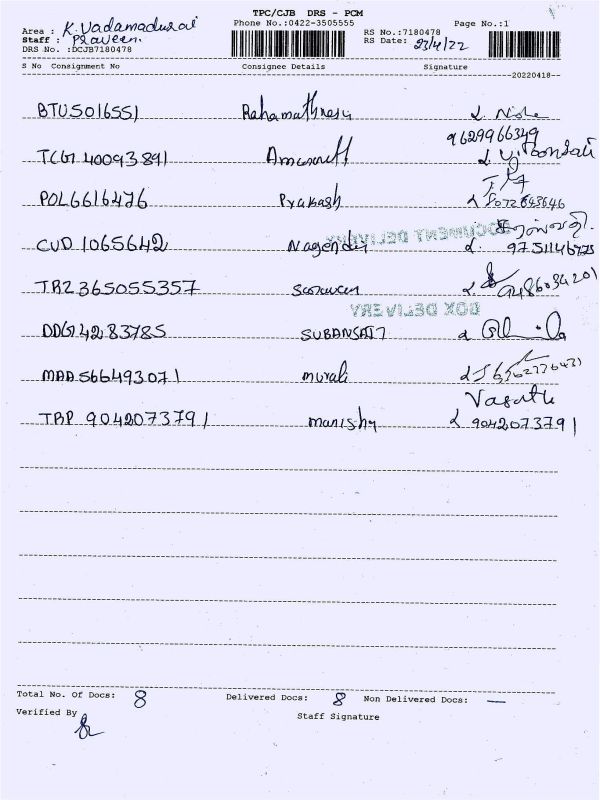 TPC/CJB DRS - PCM
Area : K.Vadamadurai Phone No.:0422-3505555 Page No.:1
Staff : Praveen. RS No.:7180478
DRS No. :DCJB7180478 RS Date: 23/4/22
S No Consignment No Consignee Details Signature
20220418
BTU5016551 Rahamathnesa
9629966349
TCG740093891
POL6616476 Prakash
CUD 1065642 Nagender 9751146773
DOCUMENT DELIVERY
TRZ365055357
BOX DELIVERY
DDG74283785
MAA566493071 murali
Vasanth
TRP 9042073791 manishy 9042073791
Total No. Of Docs: 8 Delivered Docs: 8 Non Delivered Docs: —
Verified By Staff Signature